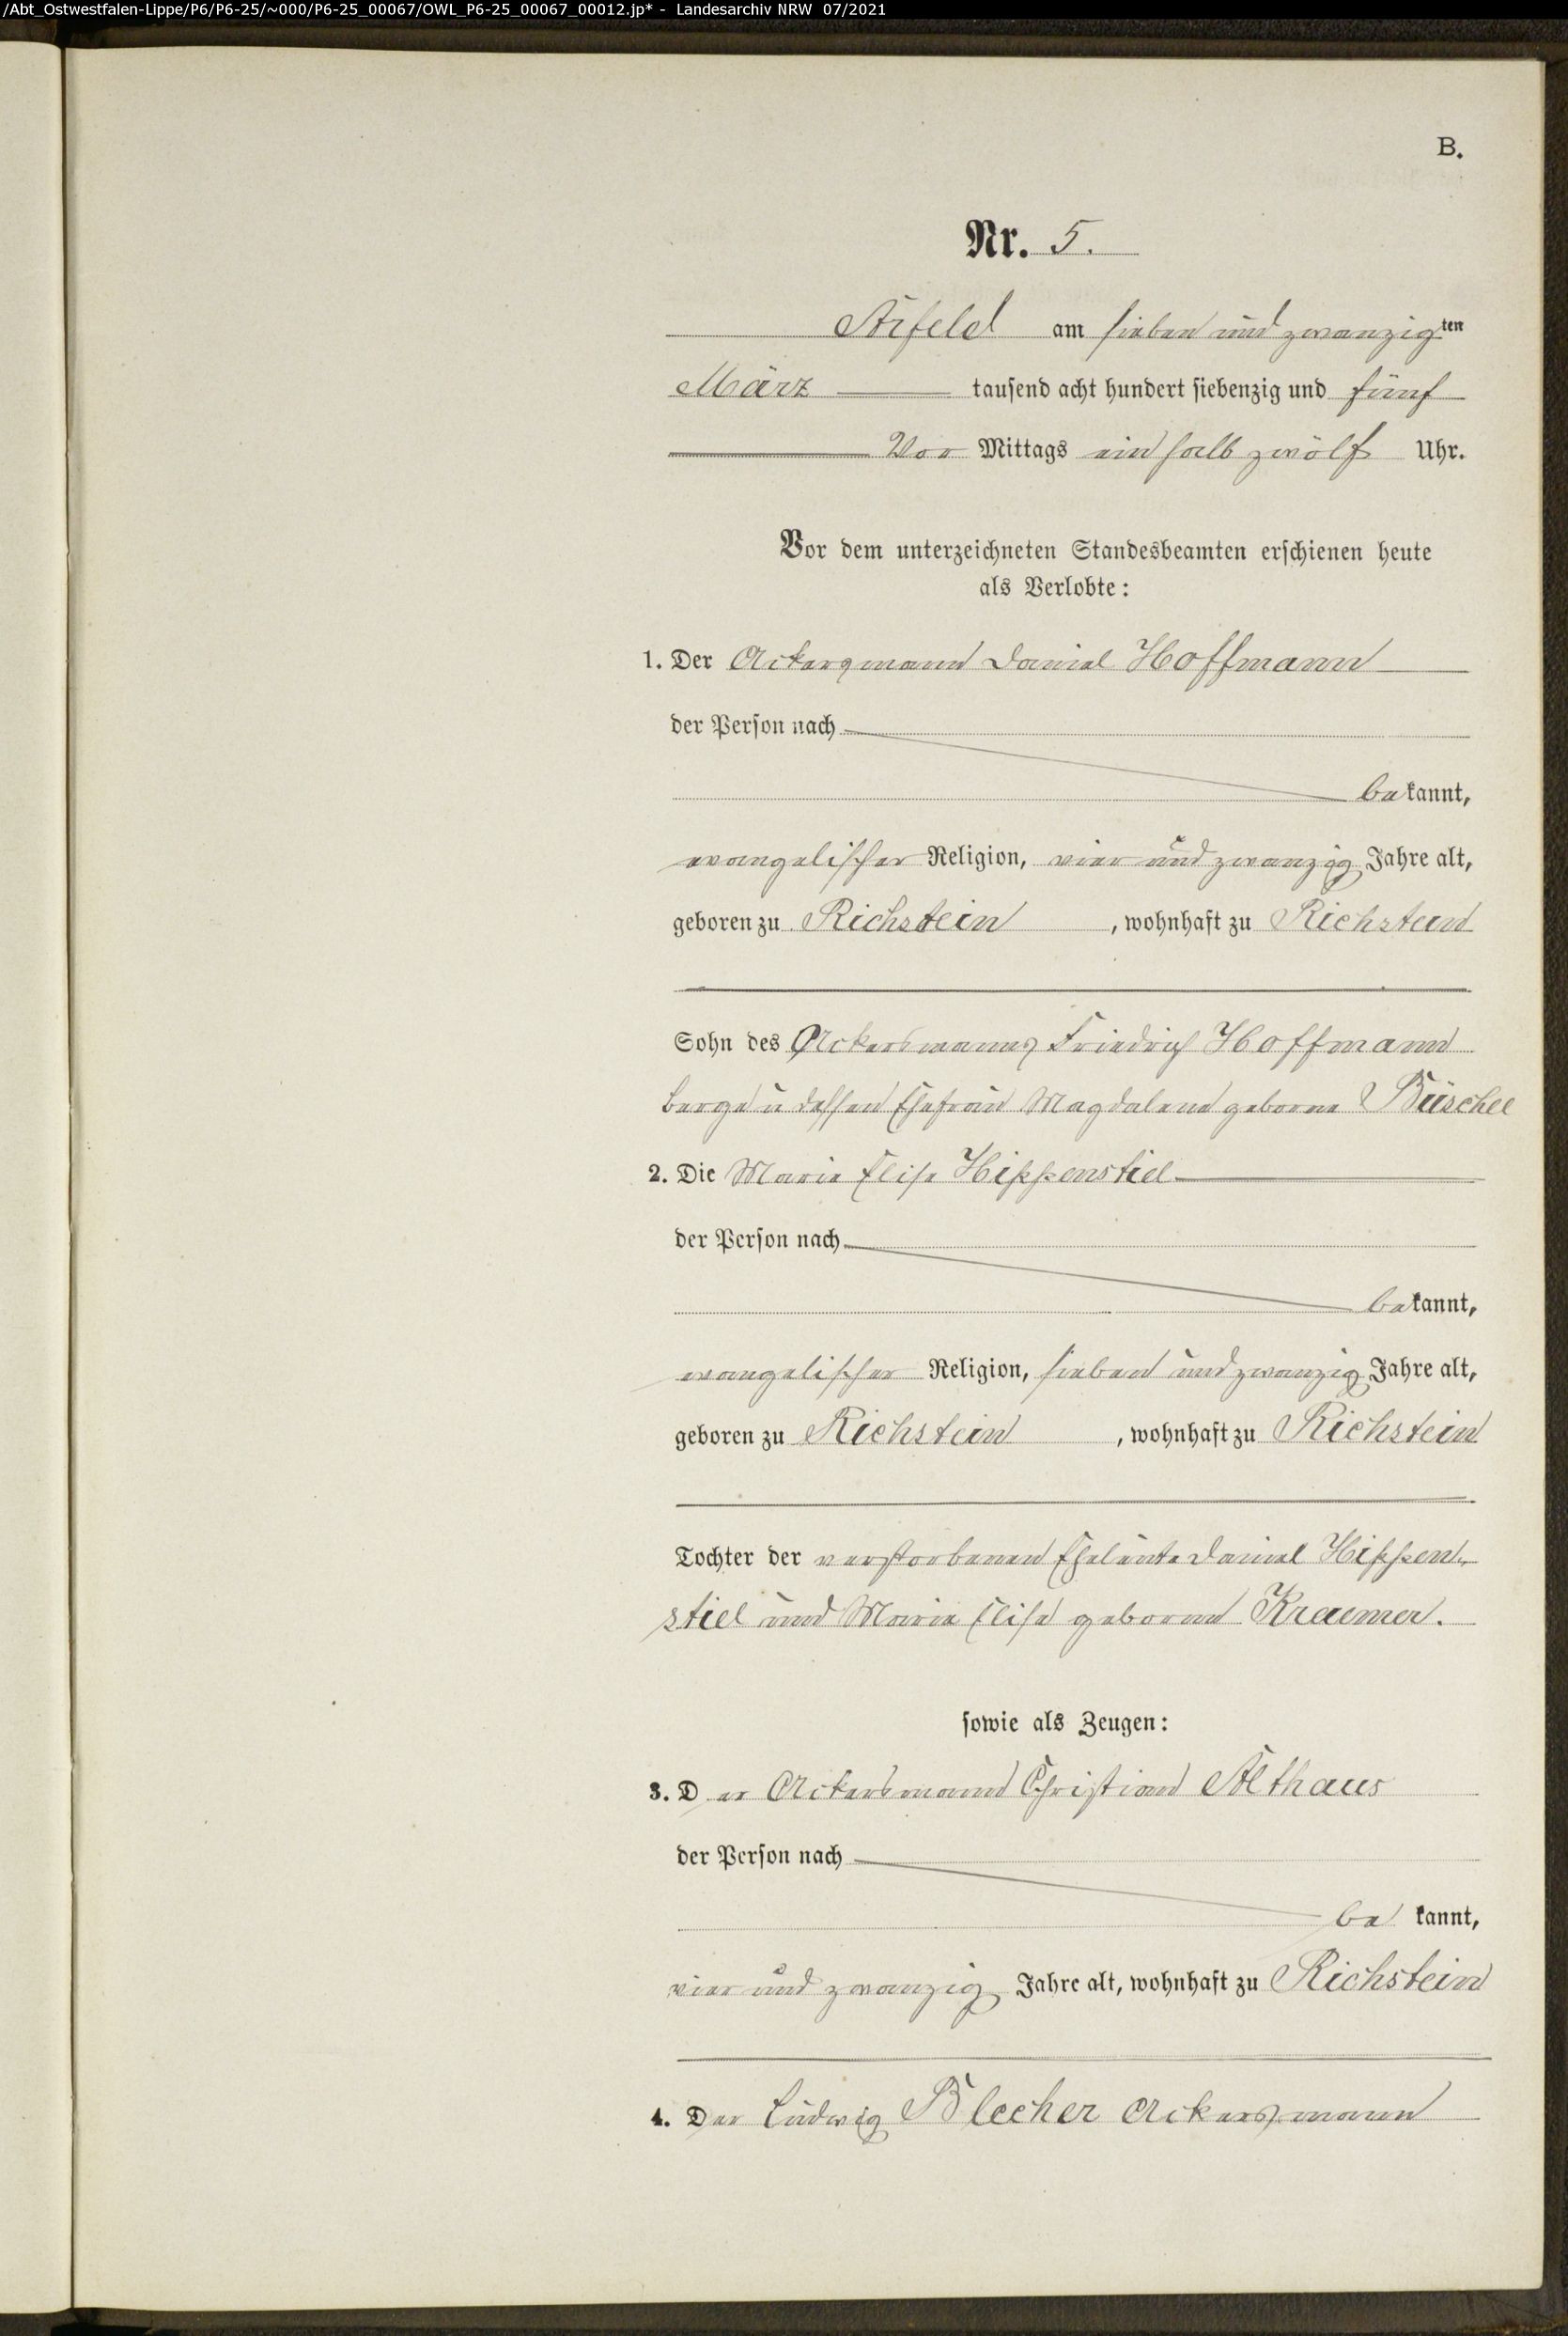 /Abt_Ostwestfalen-Lippe/P6/P6-25/~000/P6-25_00067/OWL_P6-25_00067_00012.jp* - Landesarchiv NRW 07/2021
B.
Nr. 5.
Arfeld am sieben und zwanzigten
März tausend acht hundert siebenzig und fünf
Vor Mittags ein halb zwölf Uhr.
Vor dem unterzeichneten Standesbeamten erschienen heute
als Verlobte:
1. Der Ackersmann Daniel Hoffmann
der Person nach
bekannt,
evangelischer Religion, vier und zwanzig Jahre alt,
geboren zu Richstein, wohnhaft zu Richstein
Sohn des Ackersmanns Friedrich Hoffmann
u dessen Ehefrau Magdalena geborne
2. Die Marie Elise Hippenstiel
der Person nach
bekannt,
evangelischer Religion, sieben und zwanzig Jahre alt,
geboren zu Richstein, wohnhaft zu Richstein
Tochter der verstorbenen Eheleute Daniel Hippen-
stiel und Marie Elise geborne Kraemer.
sowie als Zeugen:
3. Der Ackersmann Christian Althaus
der Person nach
be kannt,
vier und zwanzig Jahre alt, wohnhaft zu Richstein
4. Der Ludwig Blecher Ackersmann